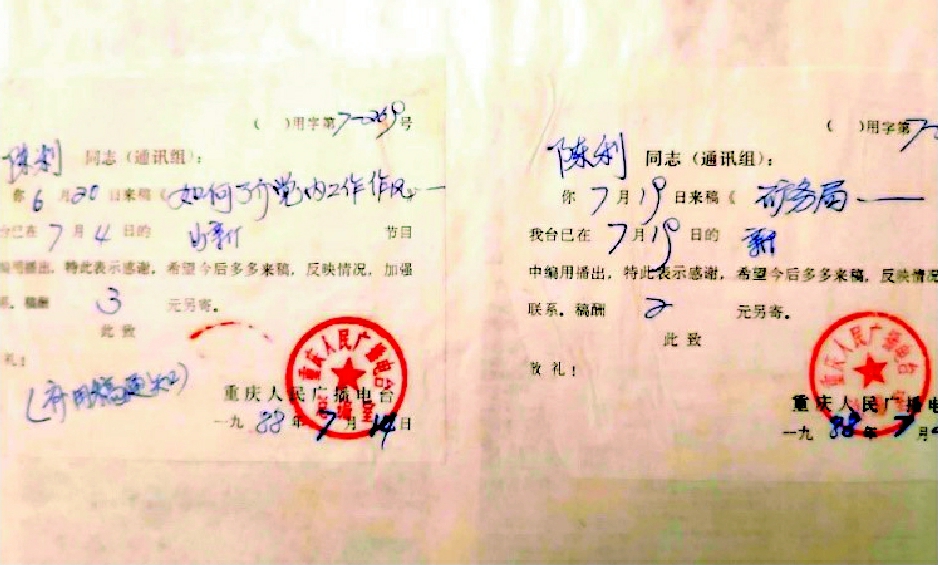 ( )用字第7-0269号
陈利 同志（通讯组）：
你6月20日来稿《如何了介党内工作作风—
台已在7月4日的 新 节目
编用播出，特此表示感谢，希望今后多多来稿，反映情况，加强
稿酬 3 元另寄。
此致
礼：
重庆人民广播电台
重庆人民广播电台
一九88年7月14日
( )用字第7-
陈利 同志（通讯组）：
你7月19日来稿《矿务局——
我台已在7月19日的 新
中编用播出，特此表示感谢，希望今后多多来稿，反映情况
联系。稿酬 2 元另寄。
此致
敬礼：
重庆人民广播电台
重庆人民广播电
一九88年7月